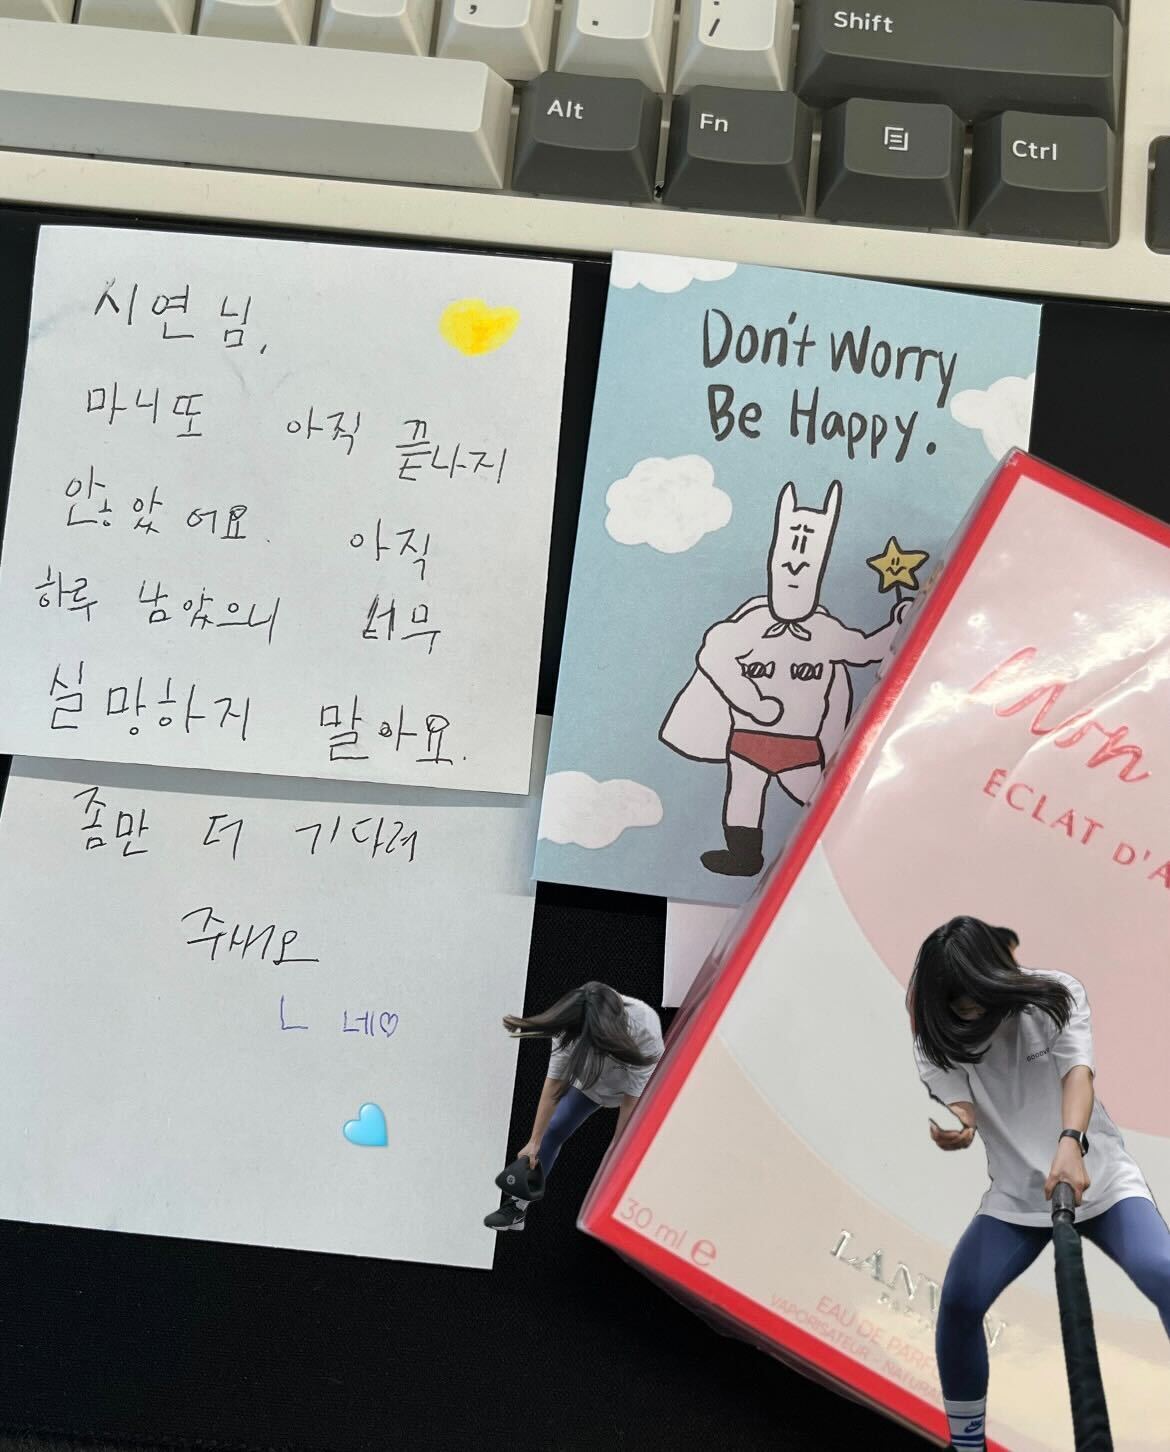 Shift
Alt
Fn
Ctrl
시연님,
마니또 아직 끝나지
않았어요. 아직
하루 남았으니 너무
실망하지 말아요.
좀만 더 기다려
주세요
ㄴ 네♡
Don't Worry
Be Happy.
Mon
ÉCLAT D'A
30 ml e
LANVIN
EAU DE PARF
VAPORISATEUR - NATURA